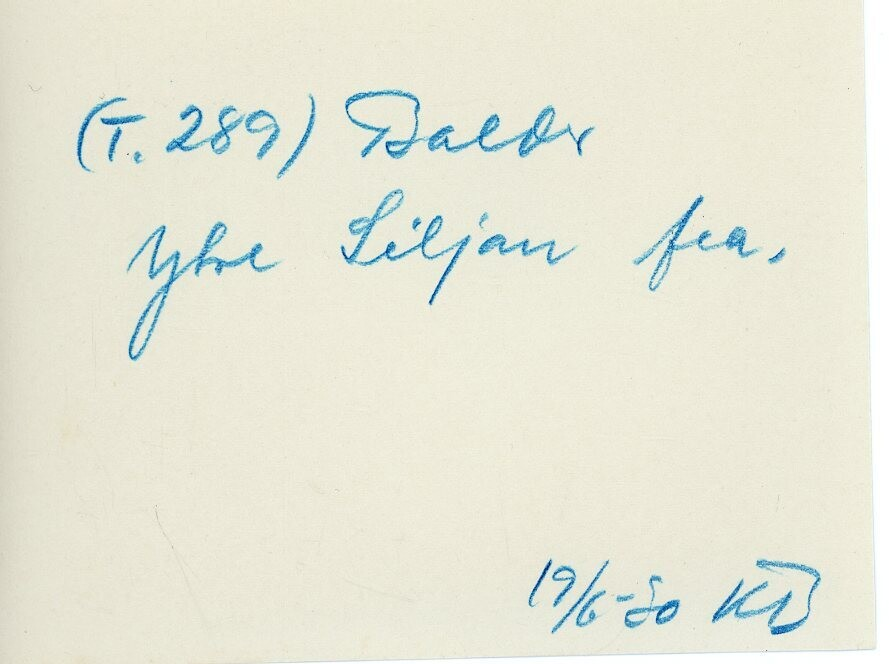 (T. 289) Balder
Yhre Siljan fra.
19/6-50 KB